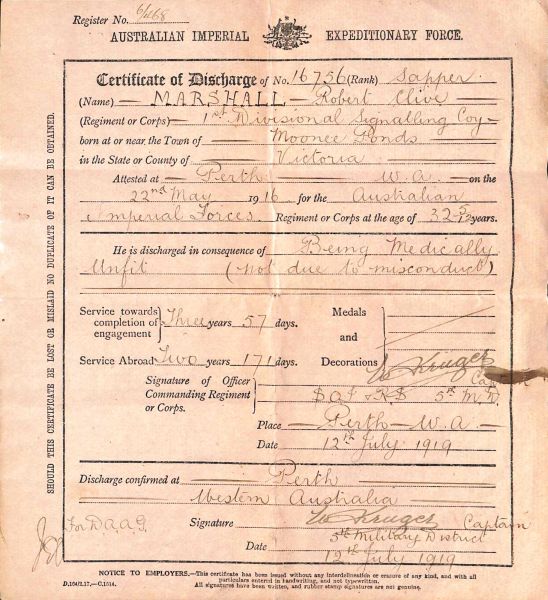 Register No. 6/468
AUSTRALIAN IMPERIAL EXPEDITIONARY FORCE.
Certificate of Discharge of No. 16756 (Rank) Sapper.
(Name) — MARSHALL — Robert Clive —
(Regiment or Corps) — 1st Divisional Signalling Coy —
born at or near the Town of — Moonee Ponds —
in the State or County of — Victoria —
Attested at — Perth — W.A. — on the
22nd May 1916 for the Australian
Imperial Forces. Regiment or Corps at the age of 32 5/12 years.
He is discharged in consequence of Being Medically
Unfit (not due to misconduct)
Service towards completion of engagement } Three years 57 days.
Service Abroad Two years 171 days.
Medals
and
Decorations
W Kruger Cap
Signature of Officer
Commanding Regiment
or Corps.
5th M.D
Place — Perth — W.A —
Date 12th July 1919
Discharge confirmed at — Perth —
Western Australia
For D.A.A.G. Signature W Kruger Captain
5th Military District
Date 12th July 1919
NOTICE TO EMPLOYERS.—This certificate has been issued without any interdelineation or erasure of any kind, and with all
particulars entered in handwriting, and not typewritten.
All signatures have been written, and rubber stamp signatures are not genuine.
D.104/1.17.—C.1014.
SHOULD THIS CERTIFICATE BE LOST OR MISLAID NO DUPLICATE OF IT CAN BE OBTAINED.